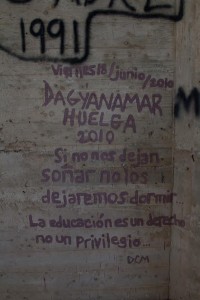 1991
Viernes 18/junio/2010
DAGYANÁMAR
HUELGA
2010
Si no nos dejan
soñar no los
dejaremos dormir
La educación es un derecho
no un privilegio...
DCM
M